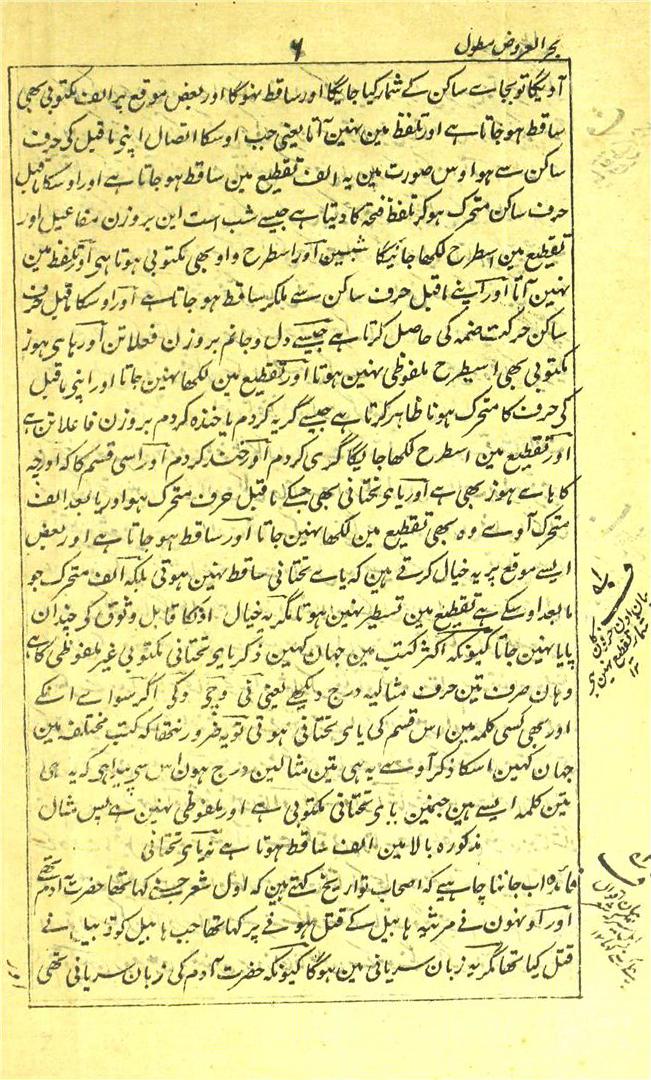 بحر العروض مطول
۶
آدیگا تو بجاے ساکن کے شمار کیا جائیگا اور ساقط نہوگا اور بعض موقع پر الف مکتوبی بھی
ساقط ہو جاتا ہے اور تلفظ مین نہین آتا یعنی جب اوسکا اتصال اپنی ماقبل کی حرف
ساکن سے ہو اوس صورت مین یہ الف تقطیع مین ساقط ہو جاتا ہے اور اوسکا ماقبل
حرف ساکن متحرک ہوکر تلفظ فتحہ کا دیتا ہے جیسے شب است این بروزن مفاعیل اور
تقطیع مین اسطرح لکھا جائیگا شبسین اور اسطرح واو بھی مکتوبی ہوتا ہی اور تلفظ مین
نہین آتا اور اپنے ماقبل حرف ساکن سے ملکر ساقط ہو جاتا ہے اور اوسکا ماقبل حرف
ساکن حرکت ضمہ کی حاصل کرتا ہے جیسے دل و جانم بروزن فعلاتن اور ہای ہوز
مکتوبی بھی اسیطرح ملفوظی نہین ہوتا اور تقطیع مین لکھا نہین جاتا اور اپنی ماقبل
کی حرف کا متحرک ہونا ظاہر کرتا ہے جیسے گریہ کردم یا خندہ کردم بروزن فاعلاتن ہے
اور تقطیع مین اسطرح لکھا جائیگا گری کردم اور خند کردم اور اسی قسم کا کہ اور چہ
کا ہاے ہوز بھی ہے اور یای تحتانی بھی جسکے ماقبل حرف متحرک ہو اور مابعد الف
متحرک آوے وہ بھی تقطیع مین لکھا نہین جاتا اور ساقط ہو جاتا ہے اور بعض
ایسے موقع پر یہ خیال کرتے ہین کہ یاے تحتانی ساقط نہین ہوتی بلکہ الف متحرک جو
مابعد اوسکے ہے تقطیع مین تسطیر نہین ہوتا مگر یہ خیال اونکا قابل وثوق کی چندان
پایا نہین جاتا کیونکہ اکثر کتب مین جہان کہین ذکر یای تحتانی مکتوبی غیر ملفوظی کا ہے
وہان صرف تین حرف مثالیہ درج دیکھے یعنی نی و چی و کی اگر سواے انکے
اور بھی کسی کلمہ مین اس قسم کی یای تحتانی ہوتی تو یہ ضرور نتھا کہ کتب مختلفہ مین
جہان کہین اسکا ذکر آوے یہی تین مثالین درج ہون اس سی پیدا ہی کہ یہ ہی
تین کلمہ ایسے ہین جنمین یای تحتانی مکتوبی ہے اور ملفوظی نہین ہے پس مثال
مذکورہ بالا مین الف ساقط ہوتا ہے نہ یای تحتانی
فائدہ اب جاننا چاہیے کہ اصحاب تواریخ کہتے ہین کہ اول شعر جسنے کہا تھا حضرت آدم تھے
اور اونہون نے مرثیہ ہابیل کے قتل ہونے پر کہا تھا جب ہابیل کو قابیل نے
قتل کیا تھا مگر یہ زبان سریانی مین ہوگا کیونکہ حضرت آدم کی زبان سریانی تھی
اور